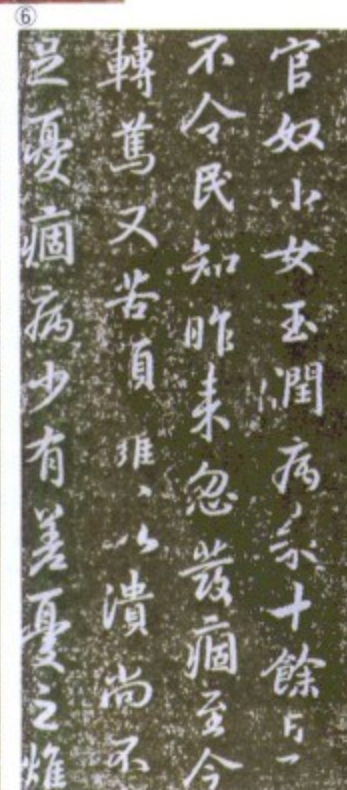 ⑥
官奴小女玉潤病來十餘日
不令民知昨來忽發痼至今
轉篤又苦頭癰〻以潰尚不
足憂痼病少有差憂之燋